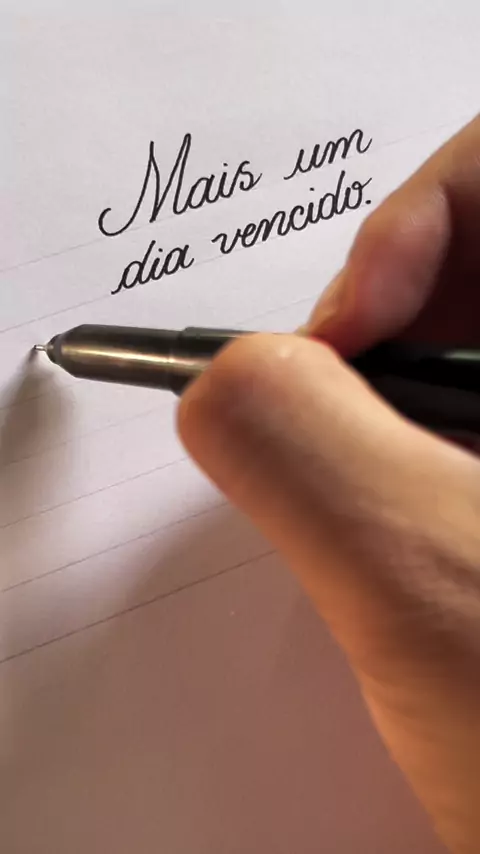 Mais um
dia vencido.